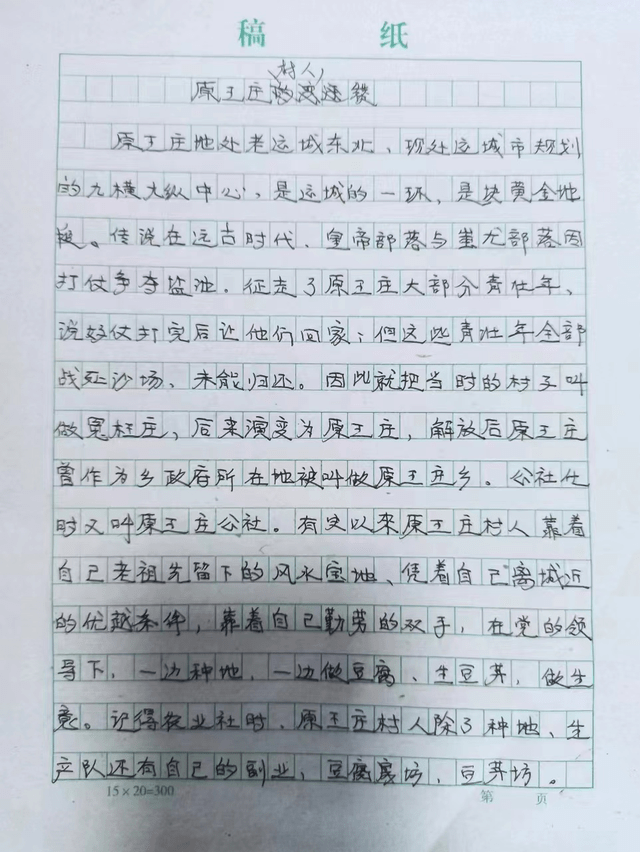 稿 纸
村人
原王庄的变迁
原王庄地处老运城东北、现处运城市规划
的九横大纵中心，是运城的一环，是块黄金地
段。传说在远古时代、皇帝部落与蚩尤部落因
打仗争夺盐池。征走了原王庄大部分青壮年、
说好仗打完后让他们回家；但这些青壮年全部
战死沙场、未能归还。因此就把当时的村子叫
做冤枉庄，后来演变为原王庄，解放后原王庄
曾作为乡政府所在地被叫做原王庄乡。公社化
时又叫原王庄公社。有史以来原王庄村人靠着
自己老祖先留下的风水宝地、凭着自己离城近
的优越条件，靠着自己勤劳的双手，在党的领
导下，一边种地，一边做豆腐、生豆芽，做生
意。记得农业社时、原王庄村人除了种地、生
产队还有自己的副业，豆腐坊，豆芽坊。
15×20=300
第 页